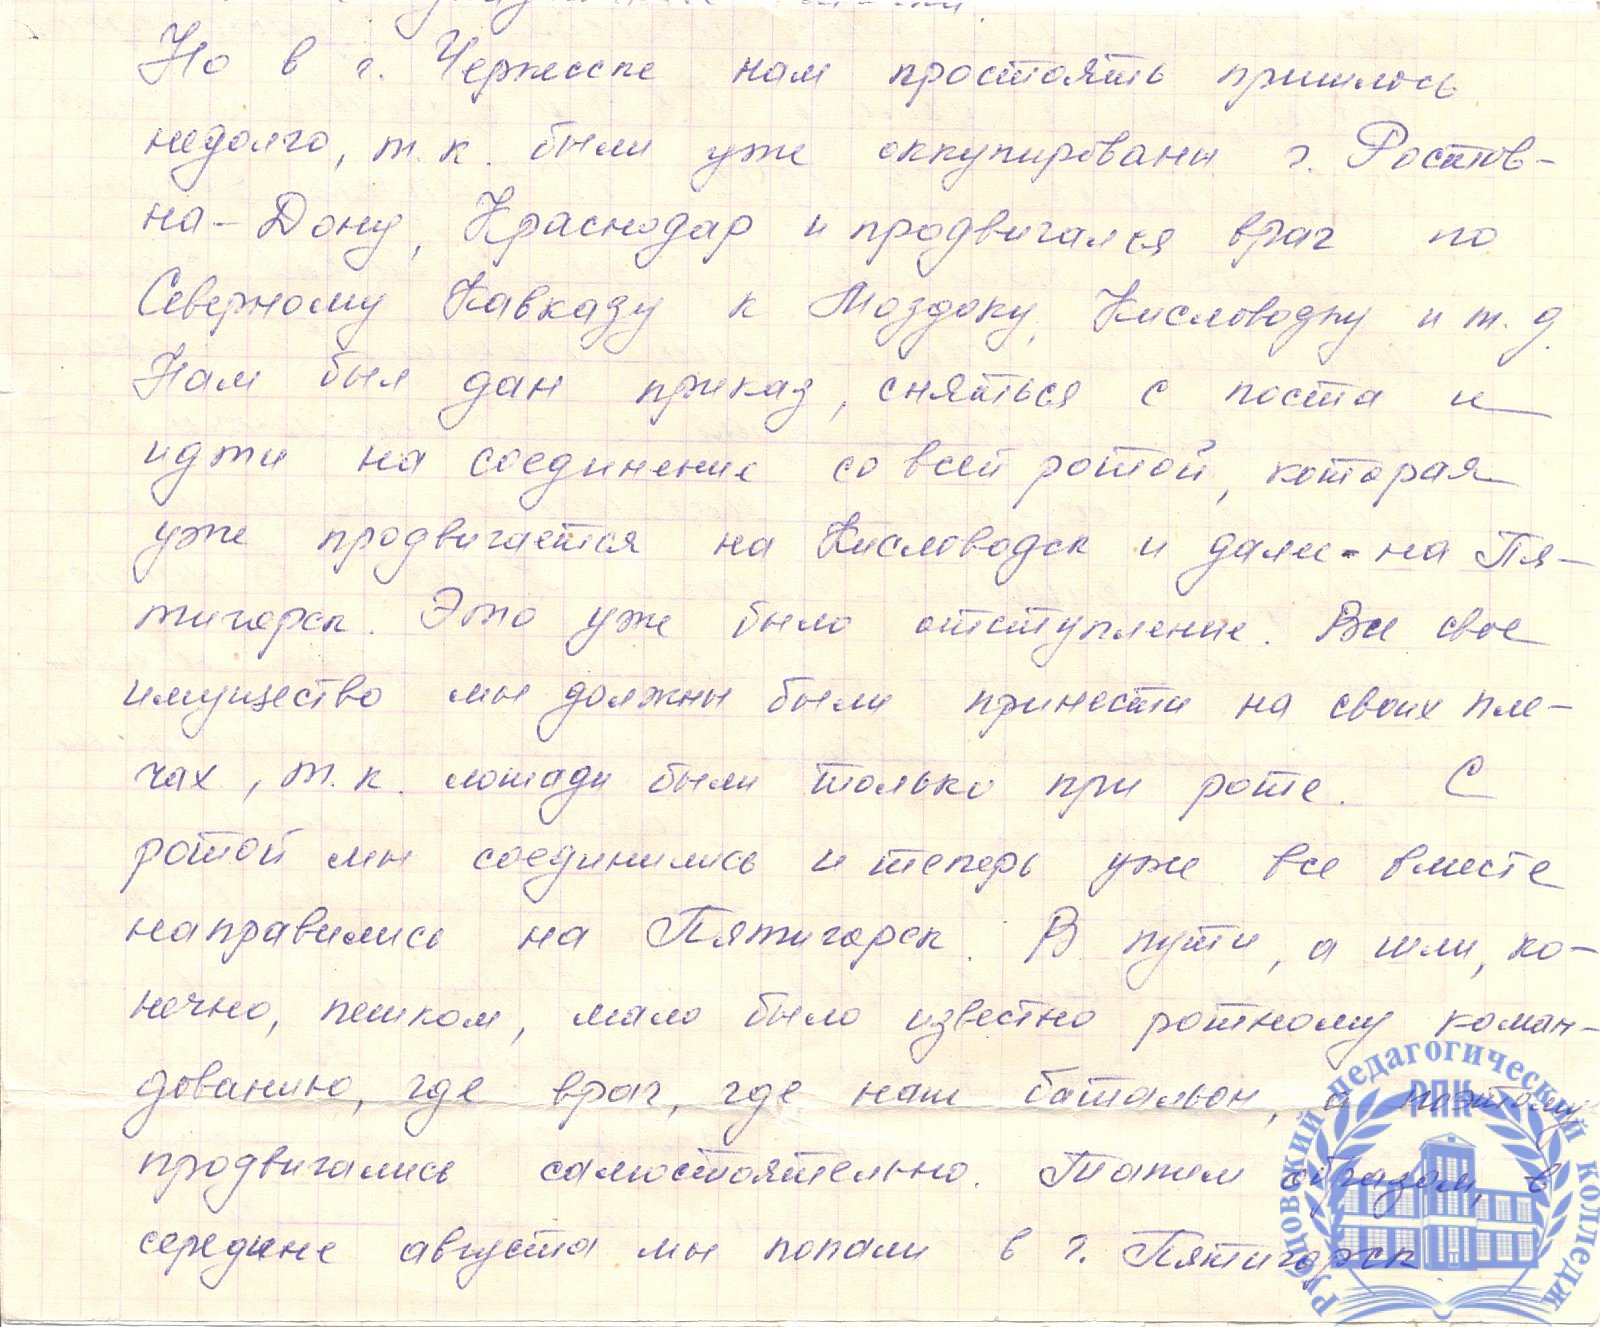 Но в г. Черкесске нам простоять пришлось
недолго, т.к. были уже оккупированы г. Ростов-
на-Дону, Краснодар и продвигался враг по
Северному Кавказу к Моздоку, Кисловодску и т.д.
Нам был дан приказ, сняться с поста и
идти на соединение со всей ротой, которая
уже продвигается на Кисловодск и далее - на Пя-
тигорск. Это уже было отступление. Все свое
имущество мы должны были принести на своих пле-
чах, т.к. лошади были только при роте. С
ротой мы соединились и теперь уже все вместе
направились на Пятигорск. В пути, а шли, ко-
нечно, пешком, мало было известно ротному коман-
дованию, где враг, где наш батальон, а поэтому
продвигались самостоятельно. Таким образом, в
середине августа мы попали в г. Пятигорск
Рубцовский педагогический колледж
РПК